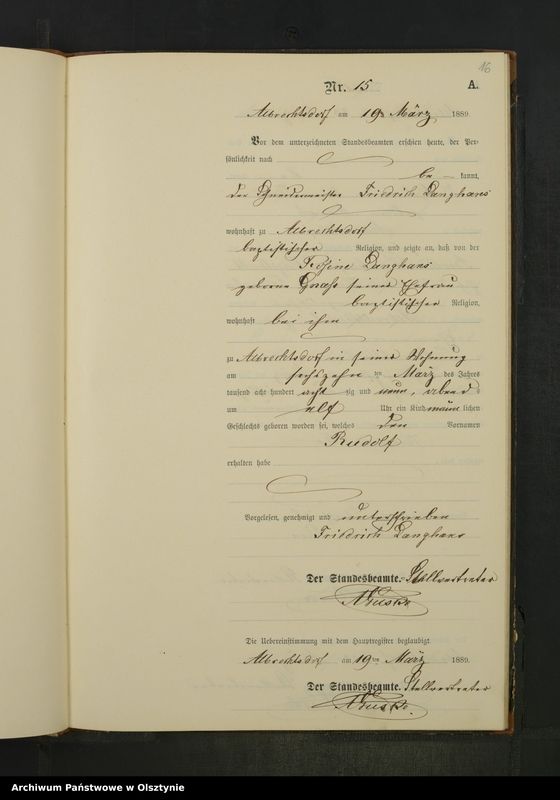 16
Nr. 15 A.
Albrechtsdorf am 19ten März 1889.
Vor dem unterzeichneten Standesbeamten erschien heute, der Per-
sönlichkeit nach
be – kannt,
der Schneidermeister Friedrich Langhans
wohnhaft zu Albrechtsdorf
baptistischer Religion, und zeigte an, daß von der
Rosine Langhans
geborene seiner Ehefrau
baptistischer Religion,
wohnhaft bei ihm
zu Albrechtsdorf in seiner Wohnung
am sechszehn ten März des Jahres
tausend acht hundert acht zig und neun, abend s
um elf Uhr ein Kind männ lichen
Geschlechts geboren worden sei, welches den Vornamen
Rudolf
erhalten habe
Vorgelesen, genehmigt und unterschrieben
Friedrich Langhans
Der Standesbeamte. Stellvertreter
Die Uebereinstimmung mit dem Hauptregister beglaubigt
Albrechtsdorf am 19ten März 1889.
Der Standesbeamte. Stellvertreter
Archiwum Państwowe w Olsztynie